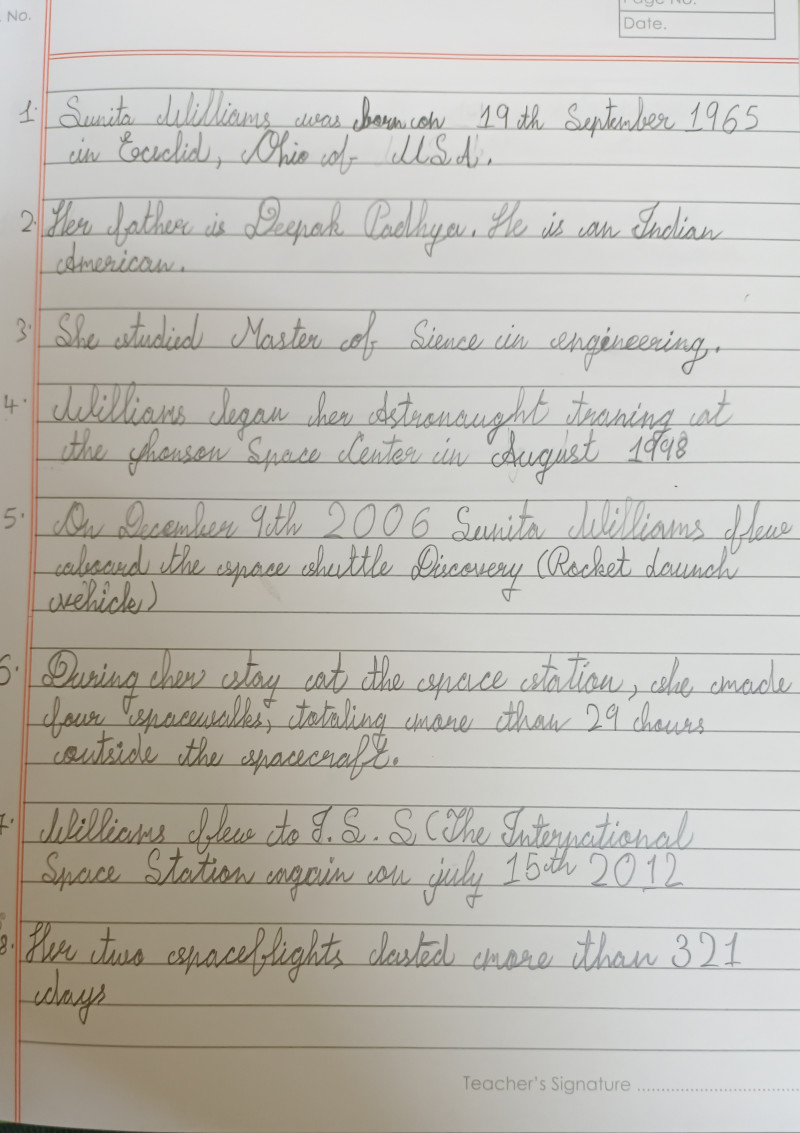 No.
Page No.
Date.
1. Sunita Williams was born on 19th September 1965
in Eculid, Ohio of U.S.A.
2. Her father is Deepak Padhya. He is an Indian
American.
3. She studied Master of Sience in engineering.
4. Williams began her Astronaught traning at
the jhonson Space Center in August 1998
5. On December 9th 2006 Sunita Williams flew
aboard the space shuttle Discovery (Rocket Launch
vehicle)
6. During her stay at the space station, she made
four spacewalks, totaling more than 29 hours
outside the spacecraft.
7. Williams flew to I.S.S (The International
Space Station again on july 15th 2012
8. Her two spaceflights lasted more than 321
days
Teacher's Signature ..............................